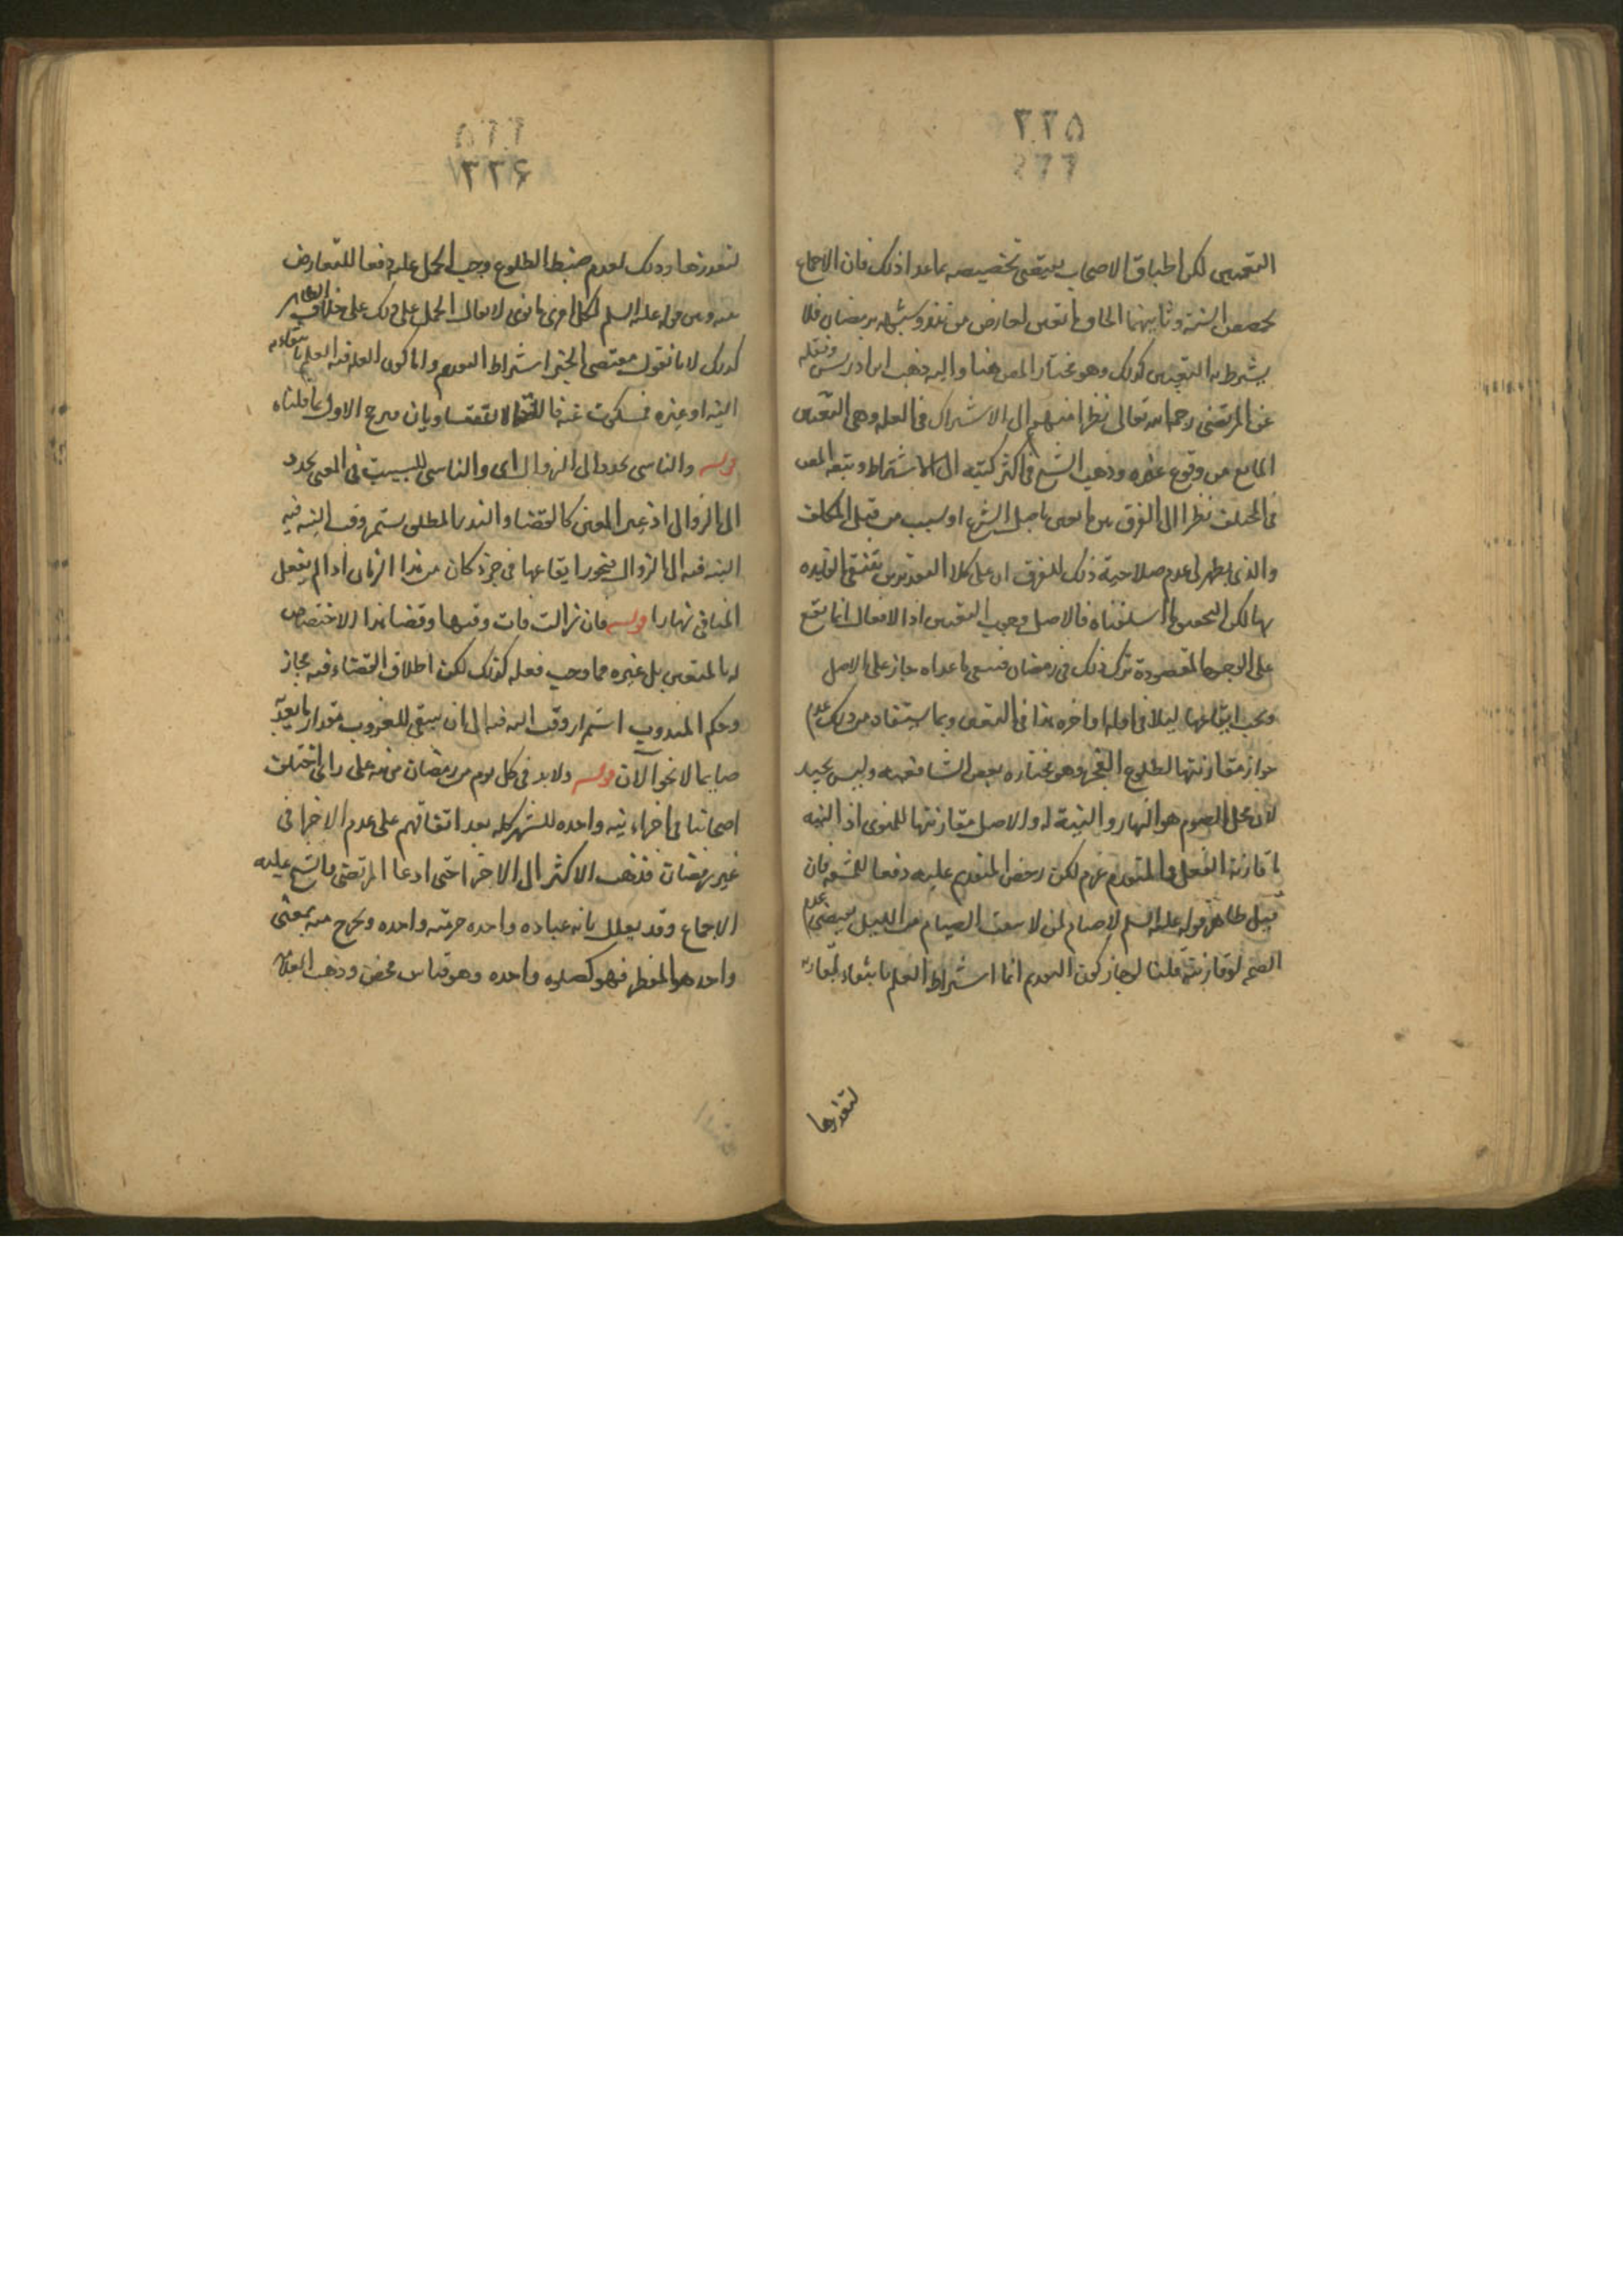 ٢٢٥
التعيين لكن اطباق الاصحاب يقتضي تخصيصه بما عدا ذلك فان الاجماع
يخصص السنة وثانيهما الحاق ما تعين لعارض من نذر وشبهه برمضان فلا
يشترط فيه التعيين كذلك وهو مختار المص هنا واليه ذهب ابن ادريس ونقله
عن المرتضى رحمه الله تعالى نظرا منهم الى الاشتراك في العلة وهي التعين
المانع من وقوع غيره وذهب الشيخ في اكثر كتبه الى الاشتراط وتبعه المص
في المختلف نظرا الى الفرق بين ما تعين باصل الشرع او بسبب من قبل المكلف
والذي يظهر لي عدم صلاحية ذلك للفرق اذ على كلا التقديرين تنتفي الفايدة
بها لكن التحقيق ما اسلفناه فالاصل وجوب التعيين اذ الافعال انما تقع
على الوجوه المقصودة ترك ذلك في رمضان فيبقى ما عداه جاز على الاصل
ويجب ايقاعها ليلا في اوله او اخره هذا في التعيين وبما يستفاد من ذلك عدم
جواز مقارنتها لطلوع الفجر وهو مختاره بعض الشافعية وليس بجيد
لان محل الصوم هو النهار والنية له والاصل مقارنتها للمنوي اذ النية
ما قارنه الفعل والمتقدم عزم لكن رخص المتقدم عليه دفعا للمشقة فان
قيل ظاهر قوله عليه السلم لا صيام لمن لا يبيت الصيام من الليل يقتضي عدم
الصحة لو قارنته قلنا لو جاز كون التقدم انما اشتراط العلم بابتغاء لمقارنة
لتعذرها
٢٢٦
لتعذرها وذلك لعدم ضبط الطلوع وجب الحمل عليه دفعا للتعارض
بينه وبين قوله عليه السلم لكل امرئ ما نوى لا يقال الحمل على ذلك على خلاف الظاهر
كذلك لانا نقول مقتضى الخبر اشتراط التقدم واما كون العلة فيه العلم بابتغائه
النية او غيره فسكوت عنه لا يقتضا وبان مرجح الاول بما قلناه
قوله والناسي يجدد الى الزوال اي والناسي للتبييت في المعين يجدد
الى الزوال اذ غير المعين كالقضا والنذر المطلق يستمر وقت النية فيه
النية فيه الى الزوال فيجوز ايقاعها في جزء كان من هذا الزمان اذا لم يفعل
المنافي نهارا قوله فان زالت فات وقتها وقضا هذا لا اختصاص
له بالمتعين بل غيره مما وجب فعله كذلك لكن اطلاق القضاء فيه مجاز
وحكم المندوب استمرار وقت النية فيه الى ان يبقى للغروب مقدار ما يعد
صايما لا نحو الآن قوله ولابد في كل يوم من رمضان من نية على راي اختلف
اصحابنا في اجزاء نية واحدة للشهر كله بعد اتفاقهم على عدم الاجزا في
غير رمضان فذهب الاكثر الى الاجزا حتى ادعا المرتضى والشيخ عليه
الاجماع وقد يعلل بانه عبادة واحدة حرمته واحدة ويخرج منه بمعنى
واحد هو الفطر فهو كصلوة واحدة وهو قياس محض وذهب